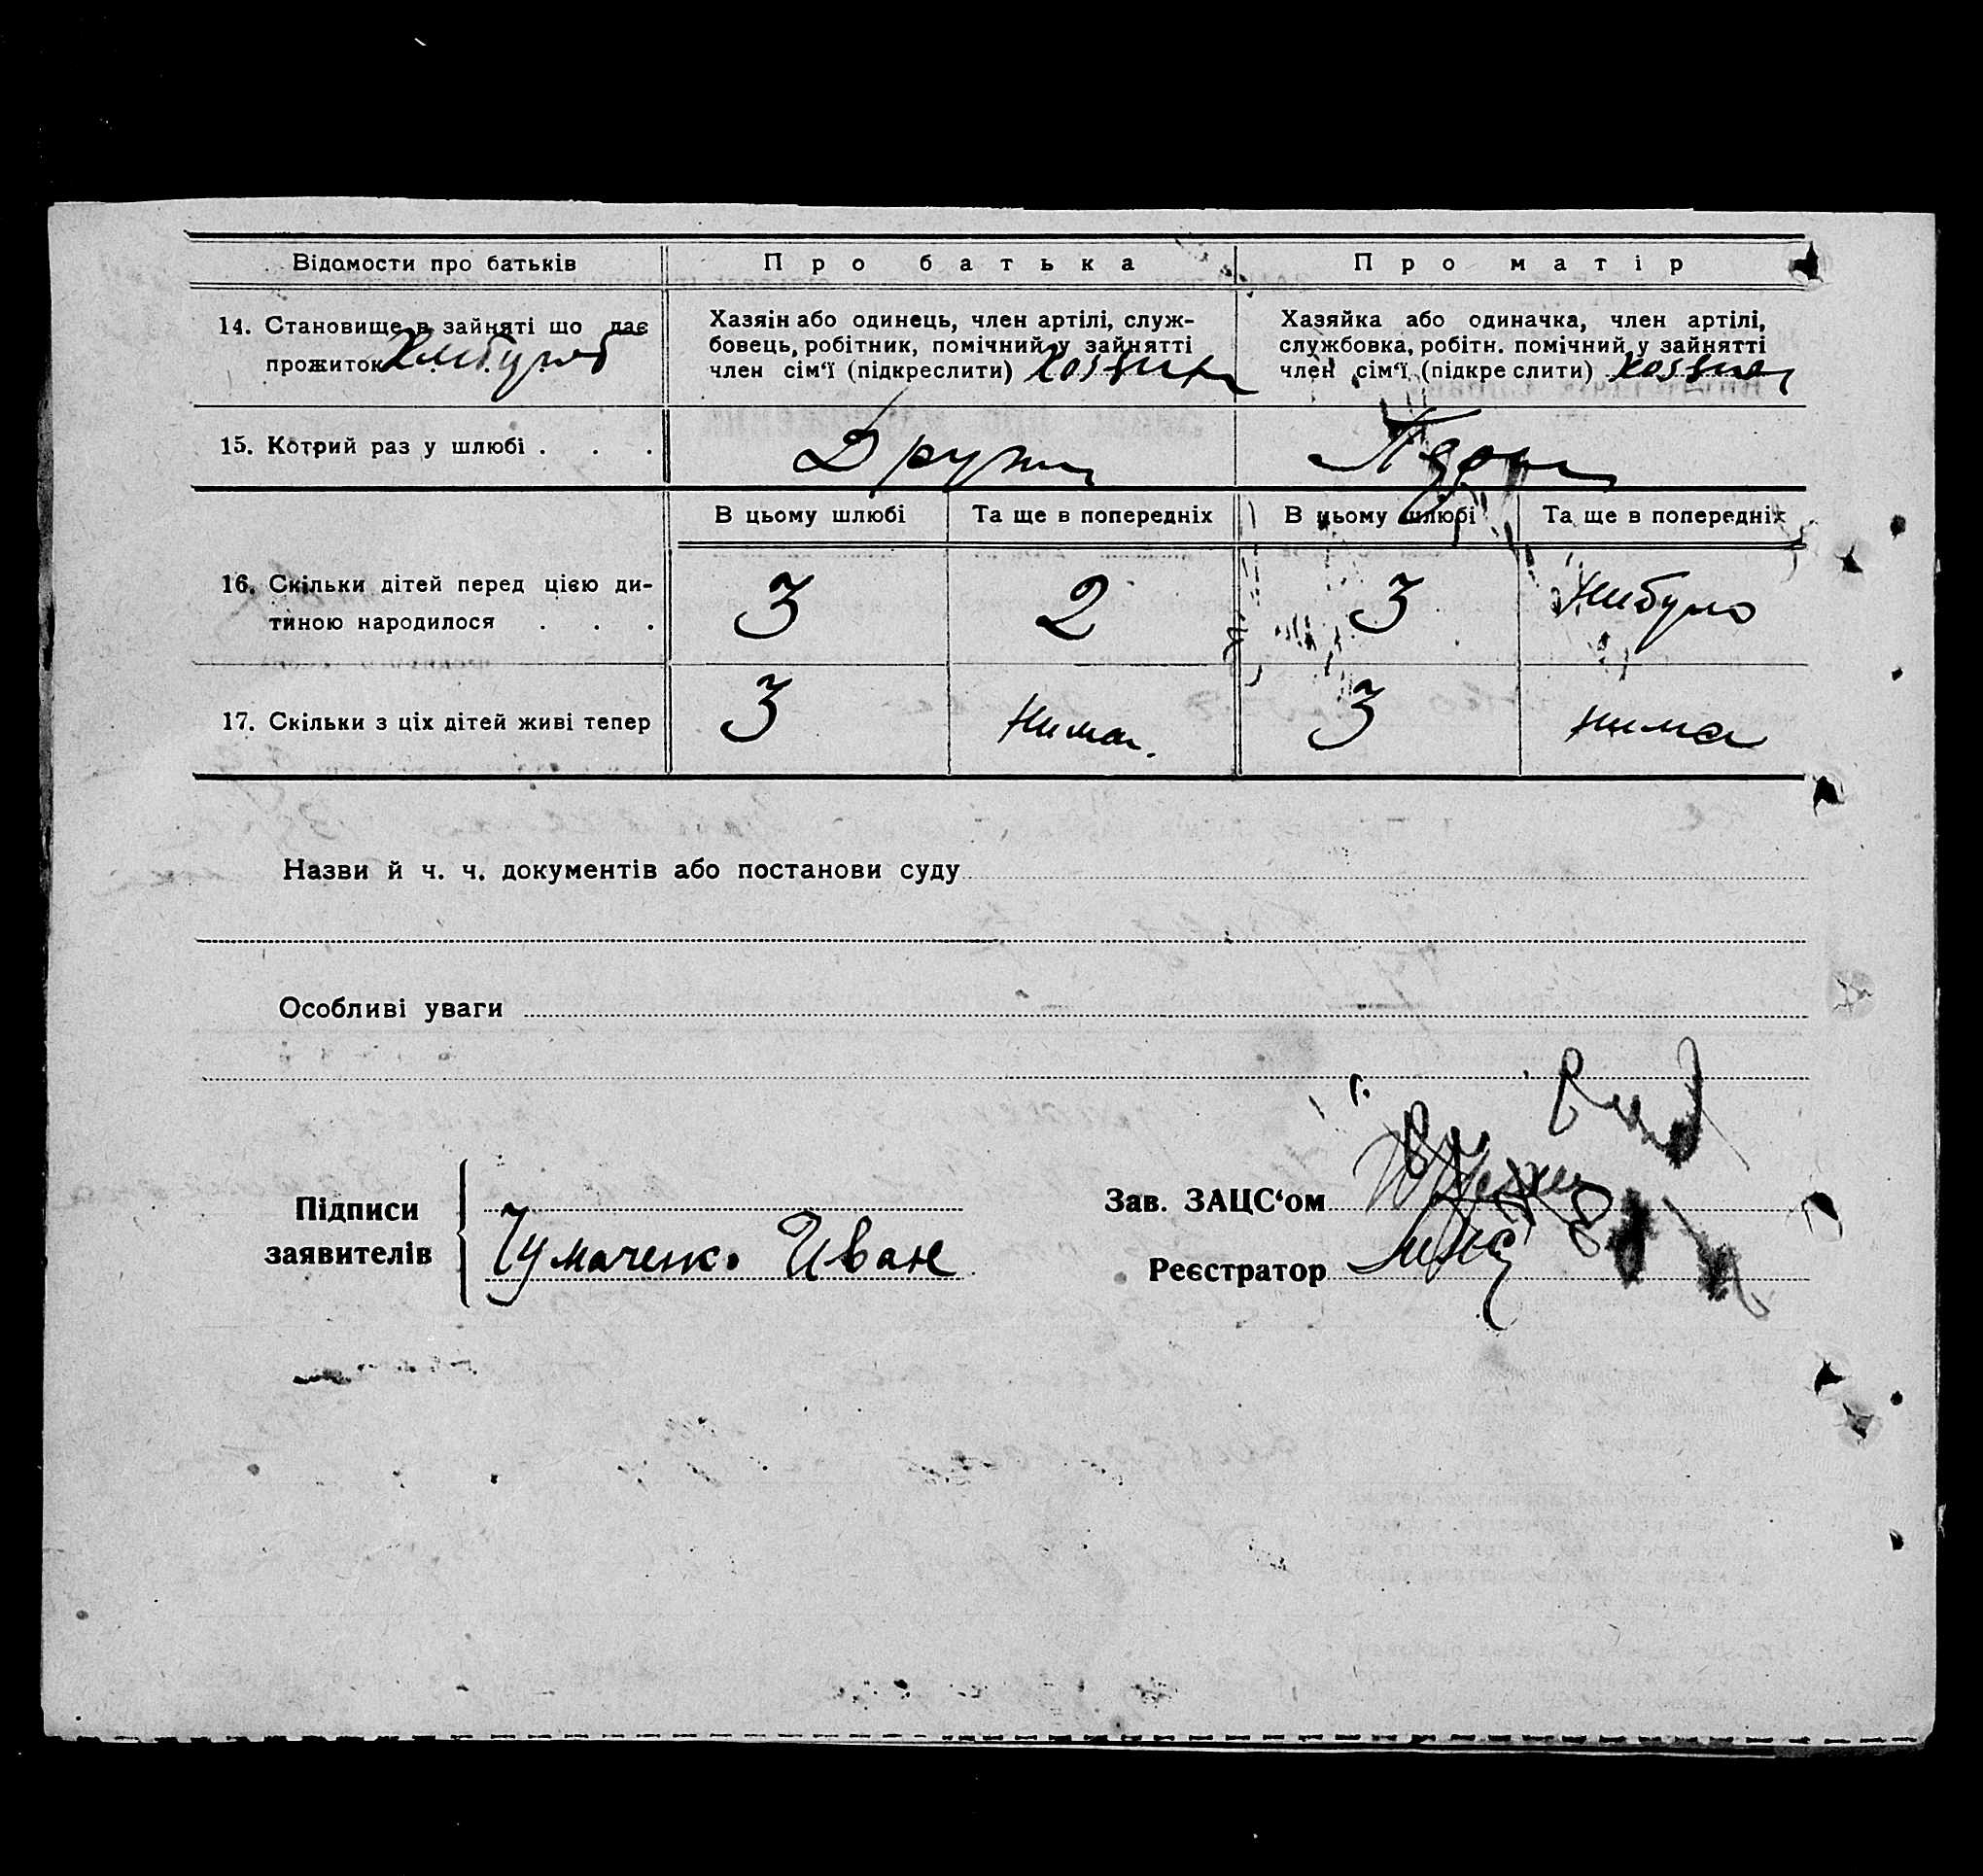 Відомости про батьків Про батька Про матір
14. Становище в зайняті що дає
прожиток Хлибороб
Хазяїн або одинець, член артілі, служ-
бовець, робітник, помічний у зайнятті
член сім‘ї (підкреслити)
Хазяйка або одиначка, член артілі,
службовка, робітн. помічний у зайнятті
член сім‘ї (підкре слити)
15. Котрий раз у шлюбі . . . Други
В цьому шлюбі Та ще в попередніх В цьому шлюбі Та ще в попередніх
16. Скільки дітей перед цією ди-
тиною народилося . . . 3 2 3 нибуло
17. Скільки з ціх дітей живі тепер 3 нима. 3 нима
Назви й ч. ч. документів або постанови суду
Особливі уваги
Підписи
заявителів
Чумаченко Иван
Зав. ЗАЦС‘ом
Реєстратор